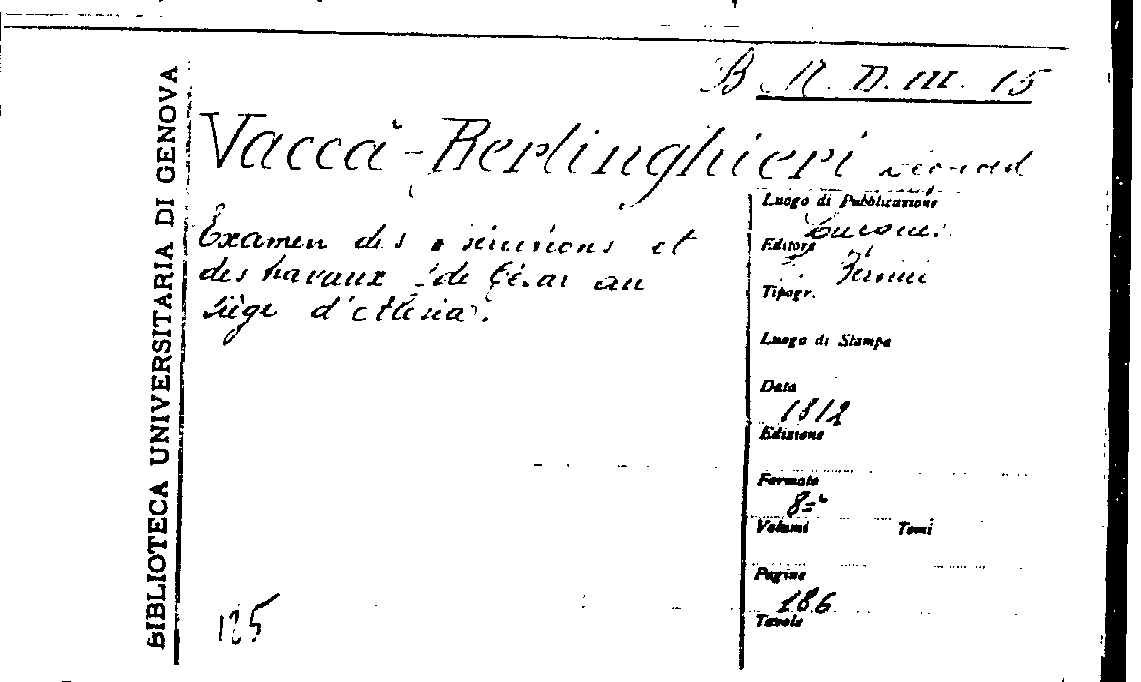 B. N. D. III. 15
BIBLIOTECA UNIVERSITARIA DI GENOVA
Vaccà-Berlinghieri Léonard
Examen des opérations et
des travaux de César au
siège d'Alesia.
Luogo di Pubblicazione
Lucques.
Editore
Tipogr.
Luogo di Stampa
Data
1812
Edizione
Formato
8=°
Volumi Tomi
Pagine
186
Tavole
125